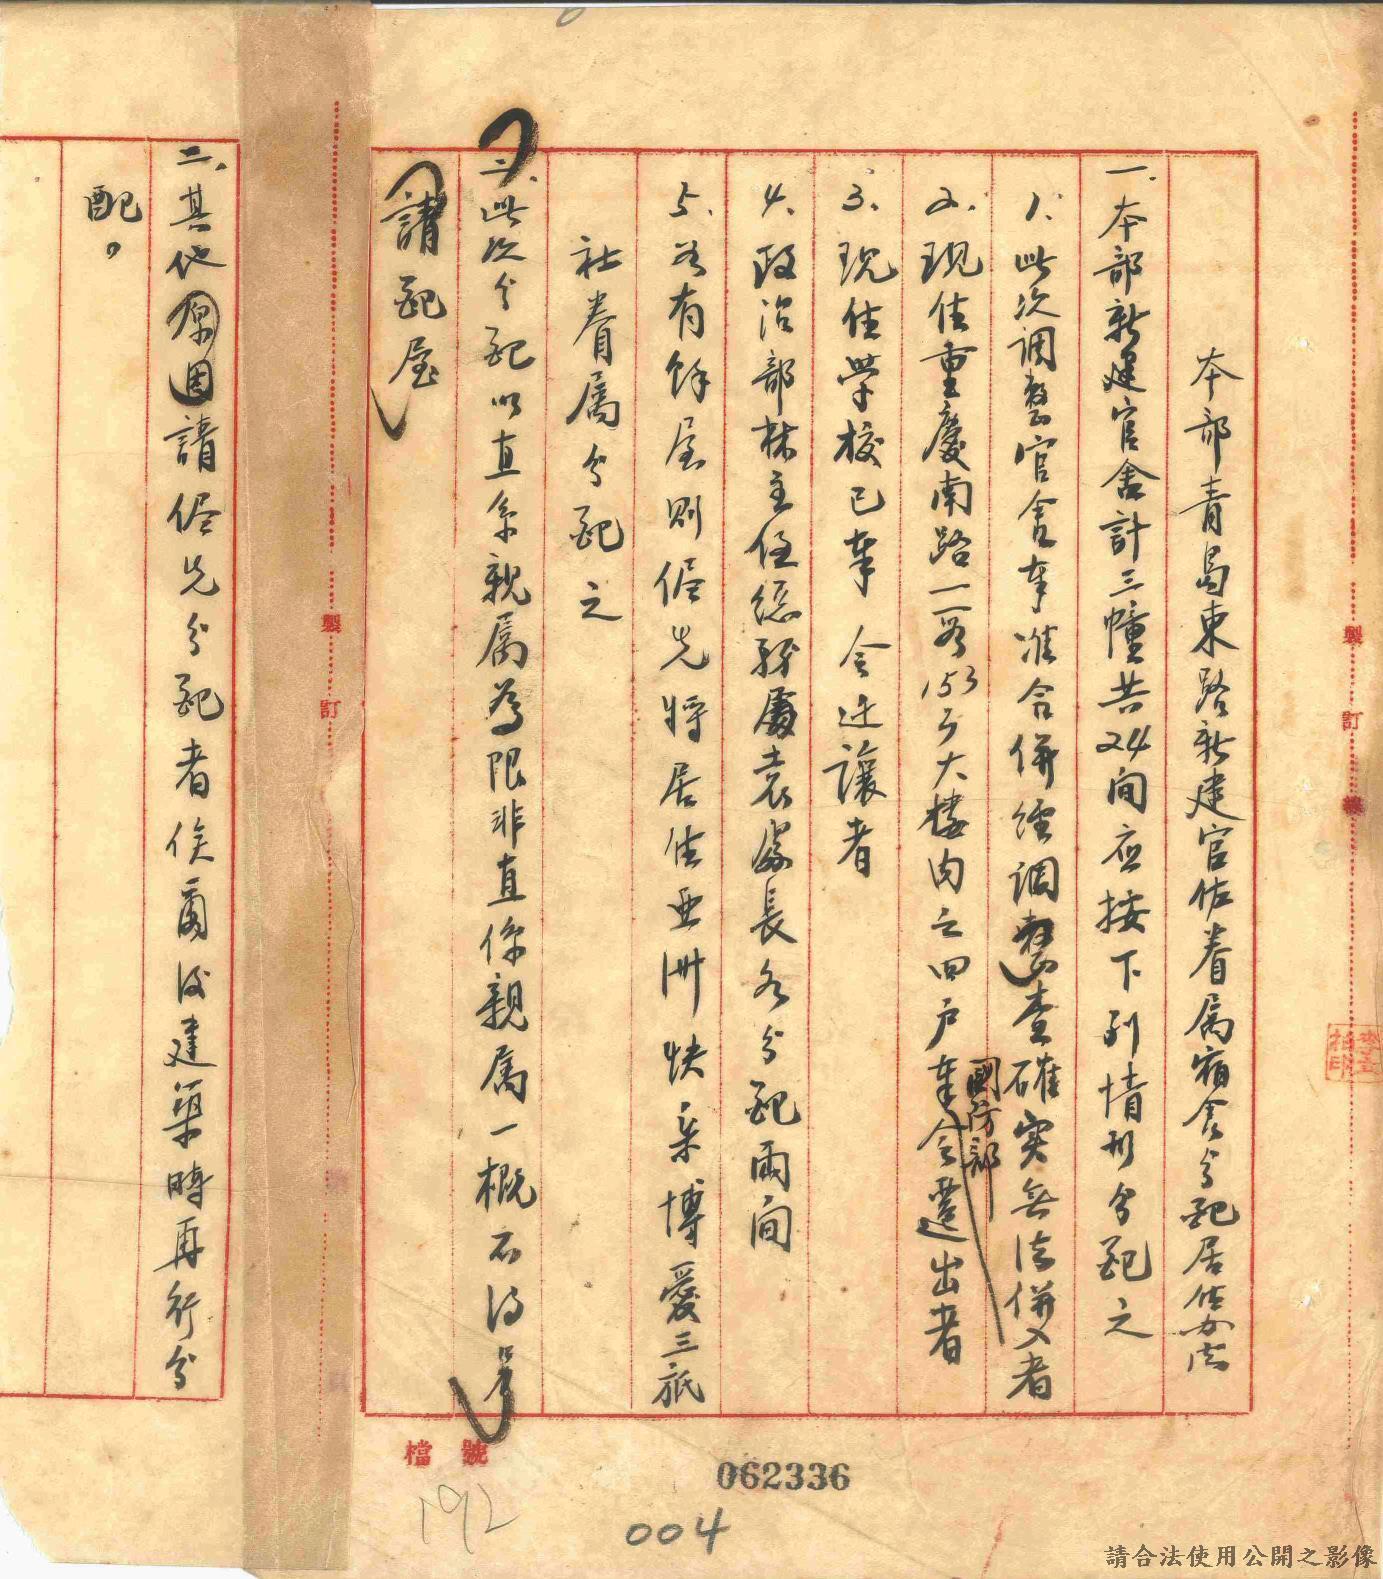 本部青島東路新建官佐眷属宿舍分配居住办法
一、本部新建官舍計三幢共24间应按下列情形分配之
1、此次調整官舍奉准合併經調整查確实無法併入者
2、現住重慶南路一段153号大楼内之四户奉國防部令遷出者
3、現住學校已奉 令迁讓者
4、政治部林主任總務處袁處長各分配兩间
5、若有餘屋則儘先将居住亚洲快樂博愛三旅
社眷属分配之
二、此次分配以直系親属為限非直係親属一概不得
請配屋
二、其他原因請儘先分配者俟爾後建築時再行分
配。
製
訂
線
製
訂
檔號
192
062336
004
請合法使用公開之影像